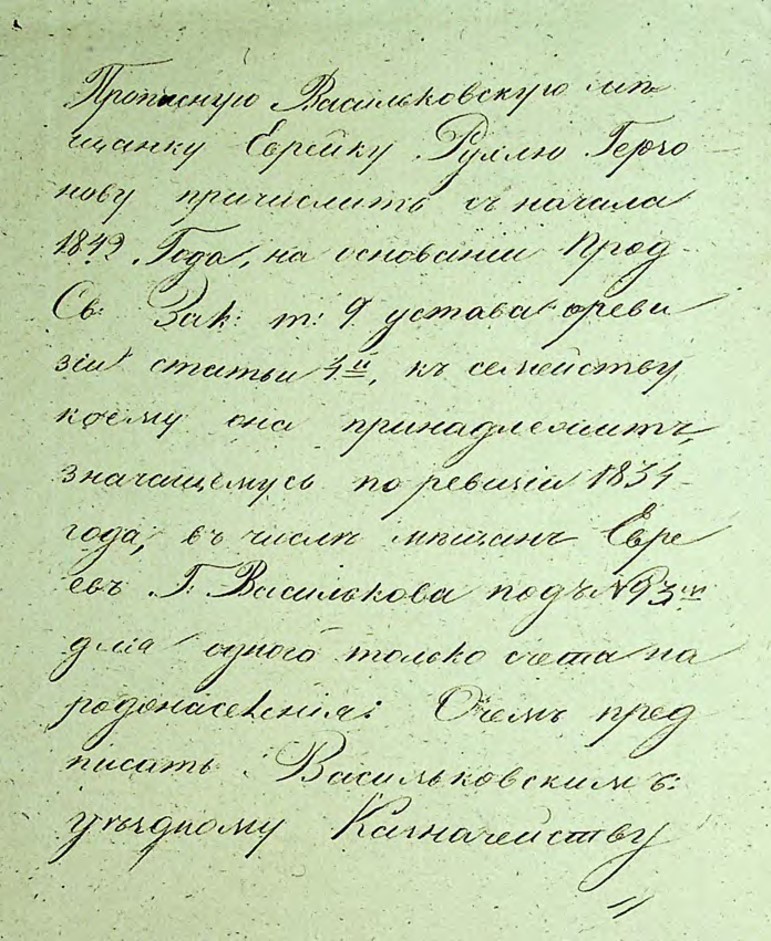 Прописную Васильковскую мѣ
щанку Еврейку Рухлю Герчо
нову причислить съ начала
1842 Года, на основаніи Прод
Св: Зак: т: 9 устава о реви
зіи статьи 4й, къ семейству
коему она принадлежитъ,
значащемусь по ревизіи 1834
года, въ числѣ мѣщанъ Евре
евъ Г. Василькова подъ №93м
для одного только счета на
родонаселенія: О чемъ пред
писать Васильковскимъ:
уѣздному Казначейству